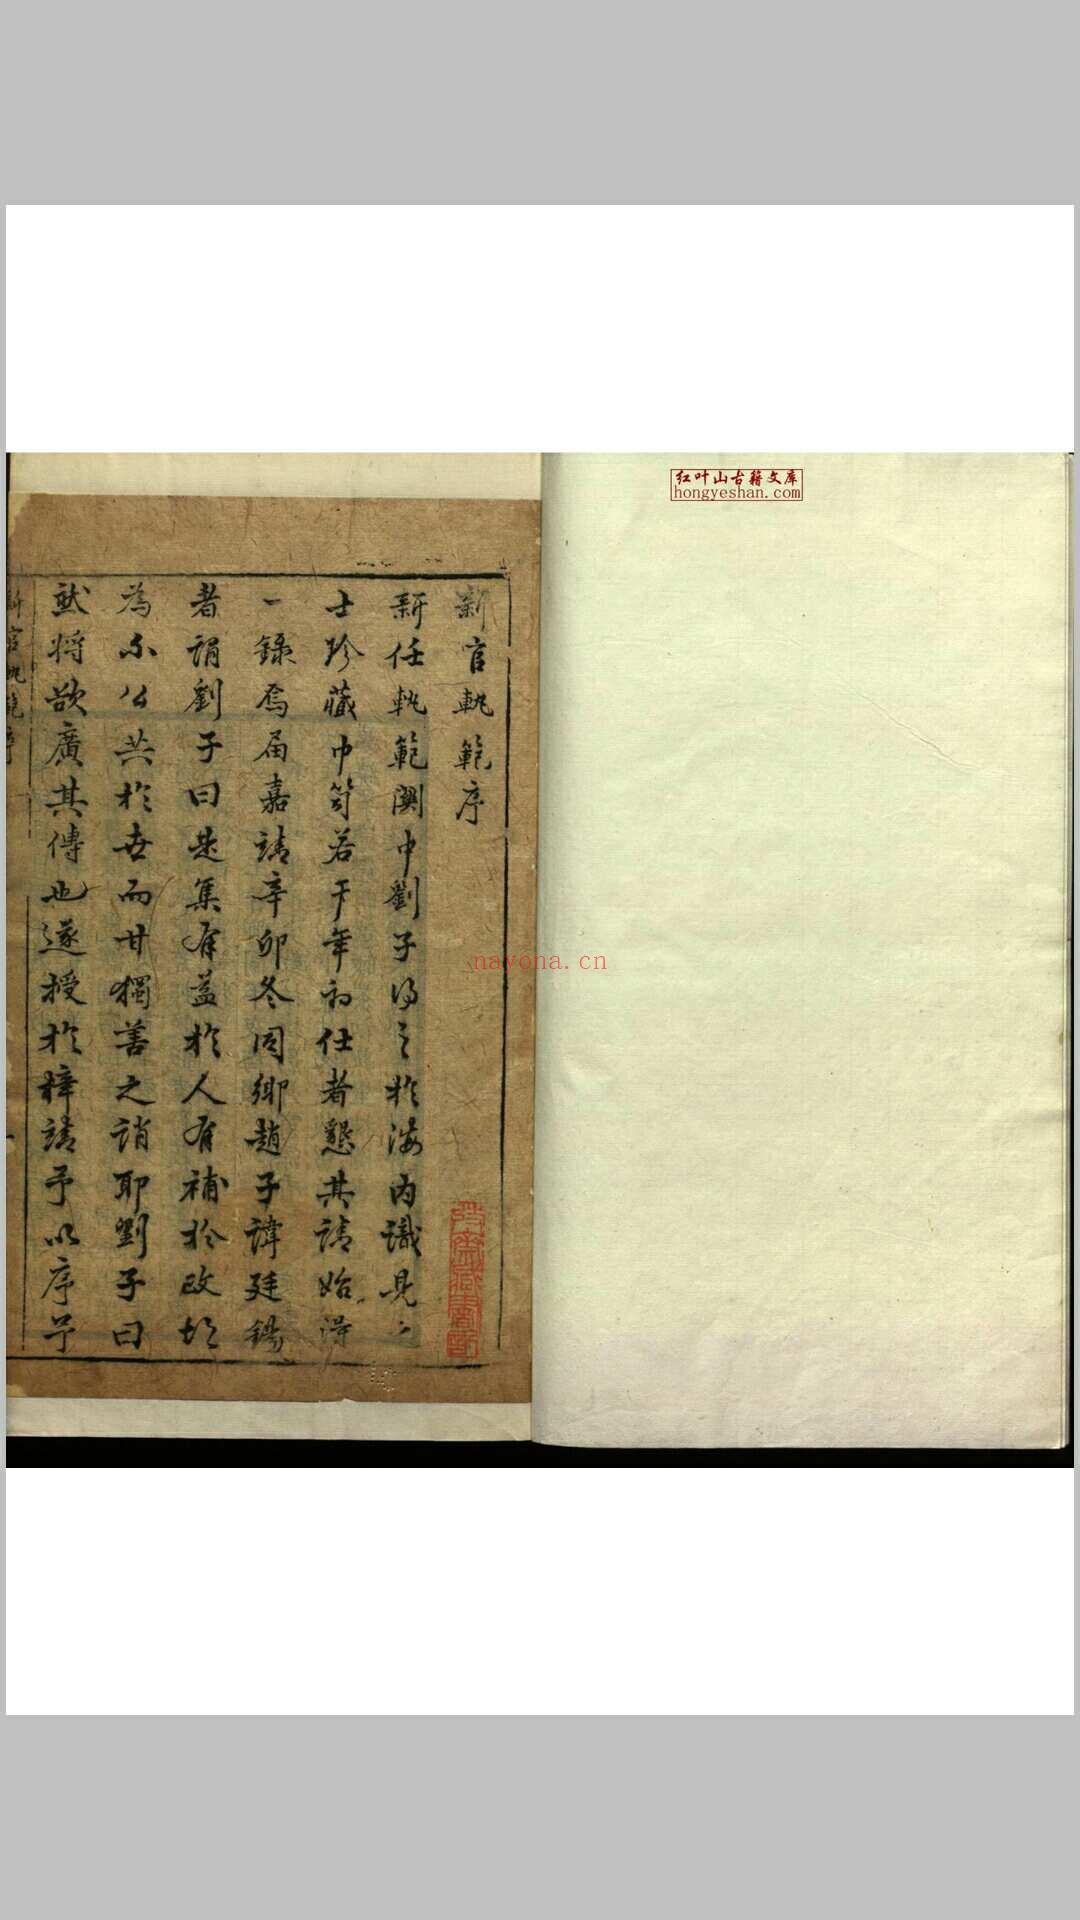 红叶山古籍文库
hongyeshan.com
新官軌範序
新任軌範関中劉子得之於海内識見之
士珍藏巾笥若干年初仕者懇其請始得
一錄焉届嘉靖辛卯冬同鄉趙子諱廷錫
者謂劉子曰是集有益於人有補於政胡
為不公共於世而甘獨善之誚耶劉子曰
然将欲廣其傳也遂授於梓請予以序予
新官軌範序
一
nayona.cn